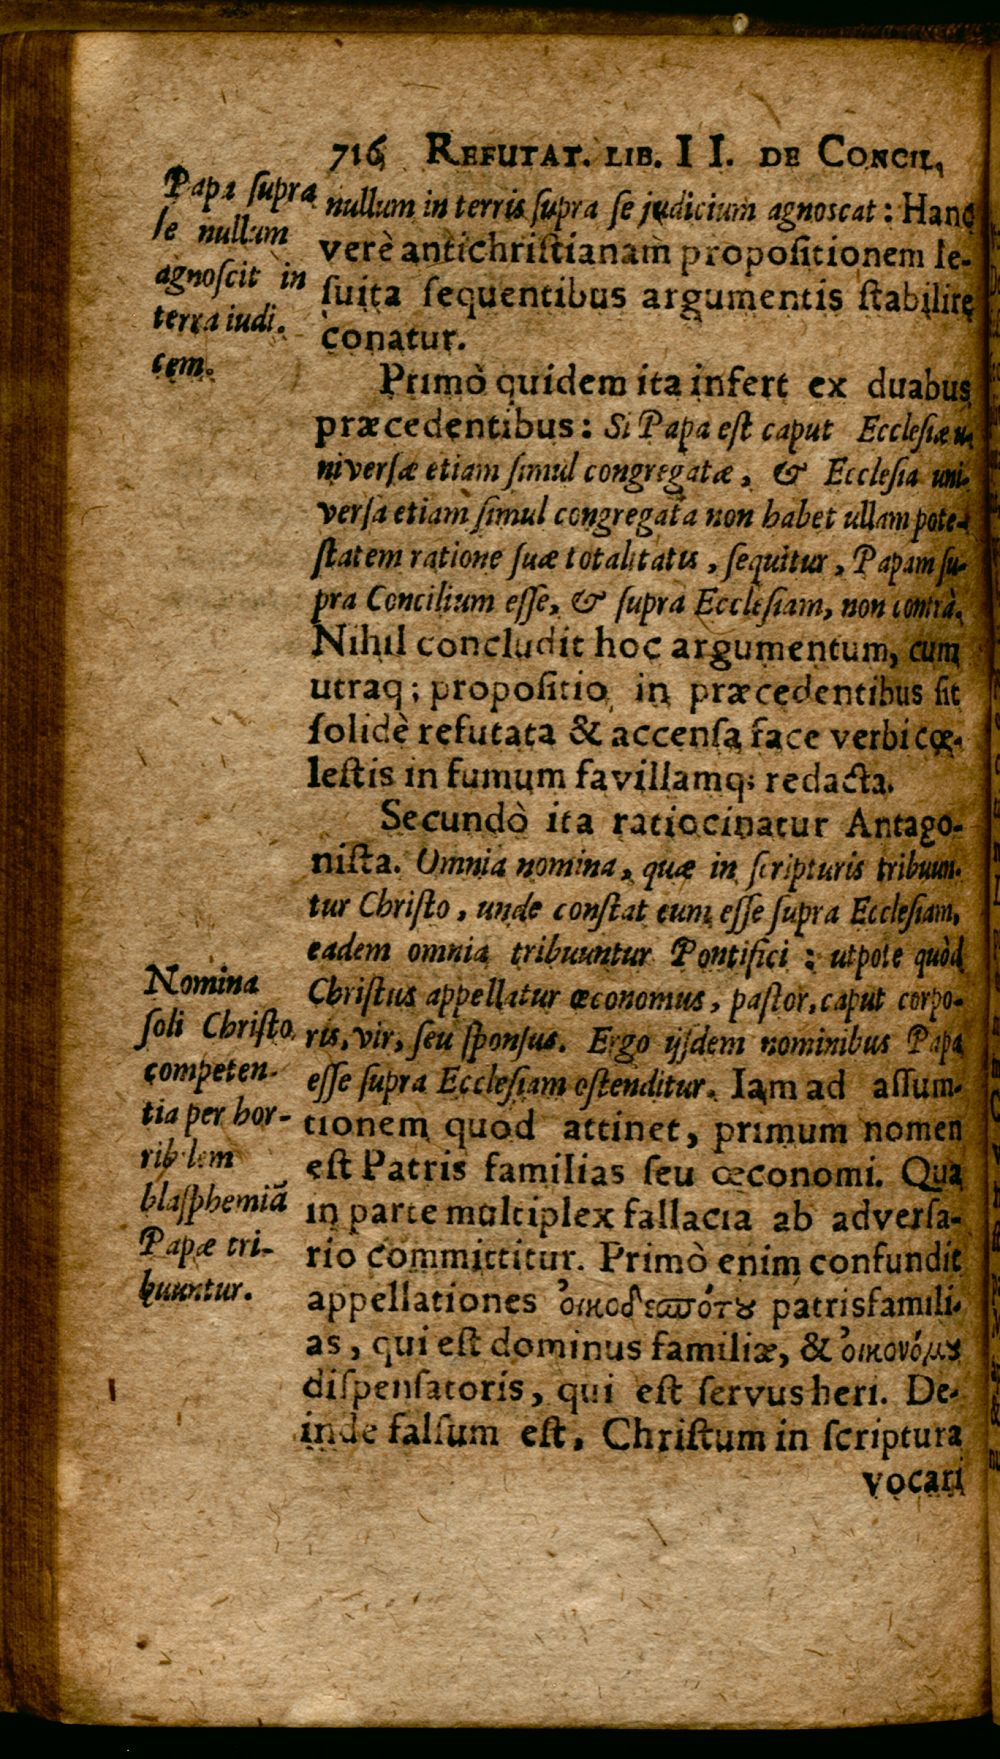 716 REFUTAT. LIB. II. DE CONCIL,
Papa ſupra
ſe nullum
agnoſcit in
terra iudi.
cem.
nullum in terris ſupra ſe judicium agnoscat: Hanc
verè antichriſtianam propoſitionem Ie-
ſuita ſequentibus argumentis ſtabilire
conatur.
Primò quidem ita infert ex duabus
præcedentibus: Si Papa eſt caput Eccleſiæ u-
niverſæ etiam ſimul congregatæ, & Eccleſia uni-
verſa etiam ſimul congregata non habet ullam pote-
ſtatem ratione ſuæ totalitatis, ſequitur, Papam ſu-
pra Concilium eſſe, & ſupra Eccleſiam, non contrà.
Nihil concludit hoc argumentum, cum
utraq; propoſitio in præcedentibus ſit
ſolidè refutata & accenſa face verbi cœ-
leſtis in fumum favillamq; redacta.
Secundò ita ratiocinatur Antago-
niſta. Omnia nomina, quæ in ſcripturis tribuun-
tur Chriſto, unde conſtat eum eſſe ſupra Eccleſiam,
eadem omnia tribuuntur Pontifici: utpote quòd
Chriſtus appellatur œconomus, paſtor, caput corpo-
ris, vir, ſeu ſponſus. Ergo ijſdem nominibus Papa
eſſe ſupra Eccleſiam oſtenditur. Iam ad aſſum-
tionem quod attinet, primum nomen
eſt Patris familias ſeu œconomi. Qua
in parte multiplex fallacia ab adverſa-
rio committitur. Primò enim confundit
appellationes ὀικοδεϖότȣ patrisfamili-
as, qui eſt dominus familiæ, & ὀικονόμȣ
diſpenſatoris, qui eſt ſervus heri. De-
inde falſum eſt, Chriſtum in ſcriptura
vocari
Nomina
ſoli Chriſto
competen-
tia per hor-
ribilem
blaſphemiã
Papæ tri-
buuntur.